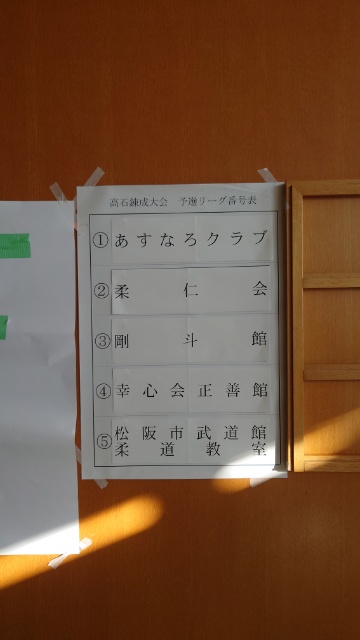 高石練成大会　予選リーグ番号表
①あすなろクラブ
②柔仁会
③剛斗館
④幸心会正善館
⑤松阪市武道館
柔道教室